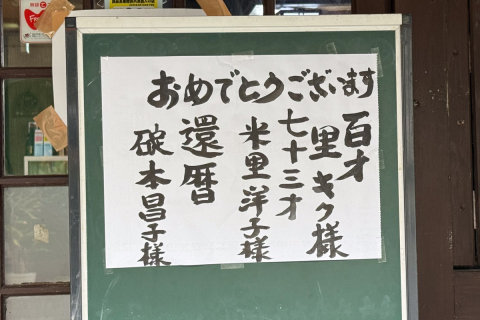 おめでとうございます
百才
里キク様
七十三才
米里洋子様
還暦
碇本昌子様